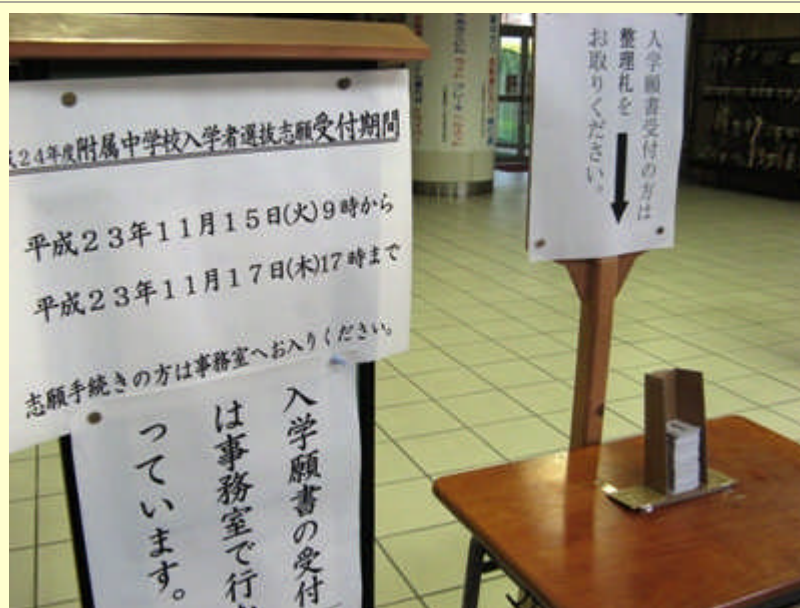 24年度附属中学校入学者選抜志願受付期間
平成23年11月15日(火)9時から
平成23年11月17日(木)17時まで
志願手続きの方は事務室へお入りください。
入学願書の受付
は事務室で行
っています。
入学願書受付の方は
整理札を
お取りください。